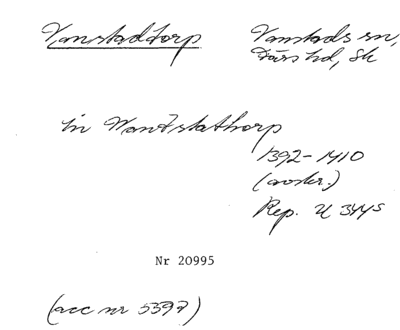 Vanstadtorp
Vanstads sn,
Färs hd, Sk
in Wanzstathorp
1392-1410
(avskr.)
Rep. U 344 s
Nr 20995
(acc nr 5397)